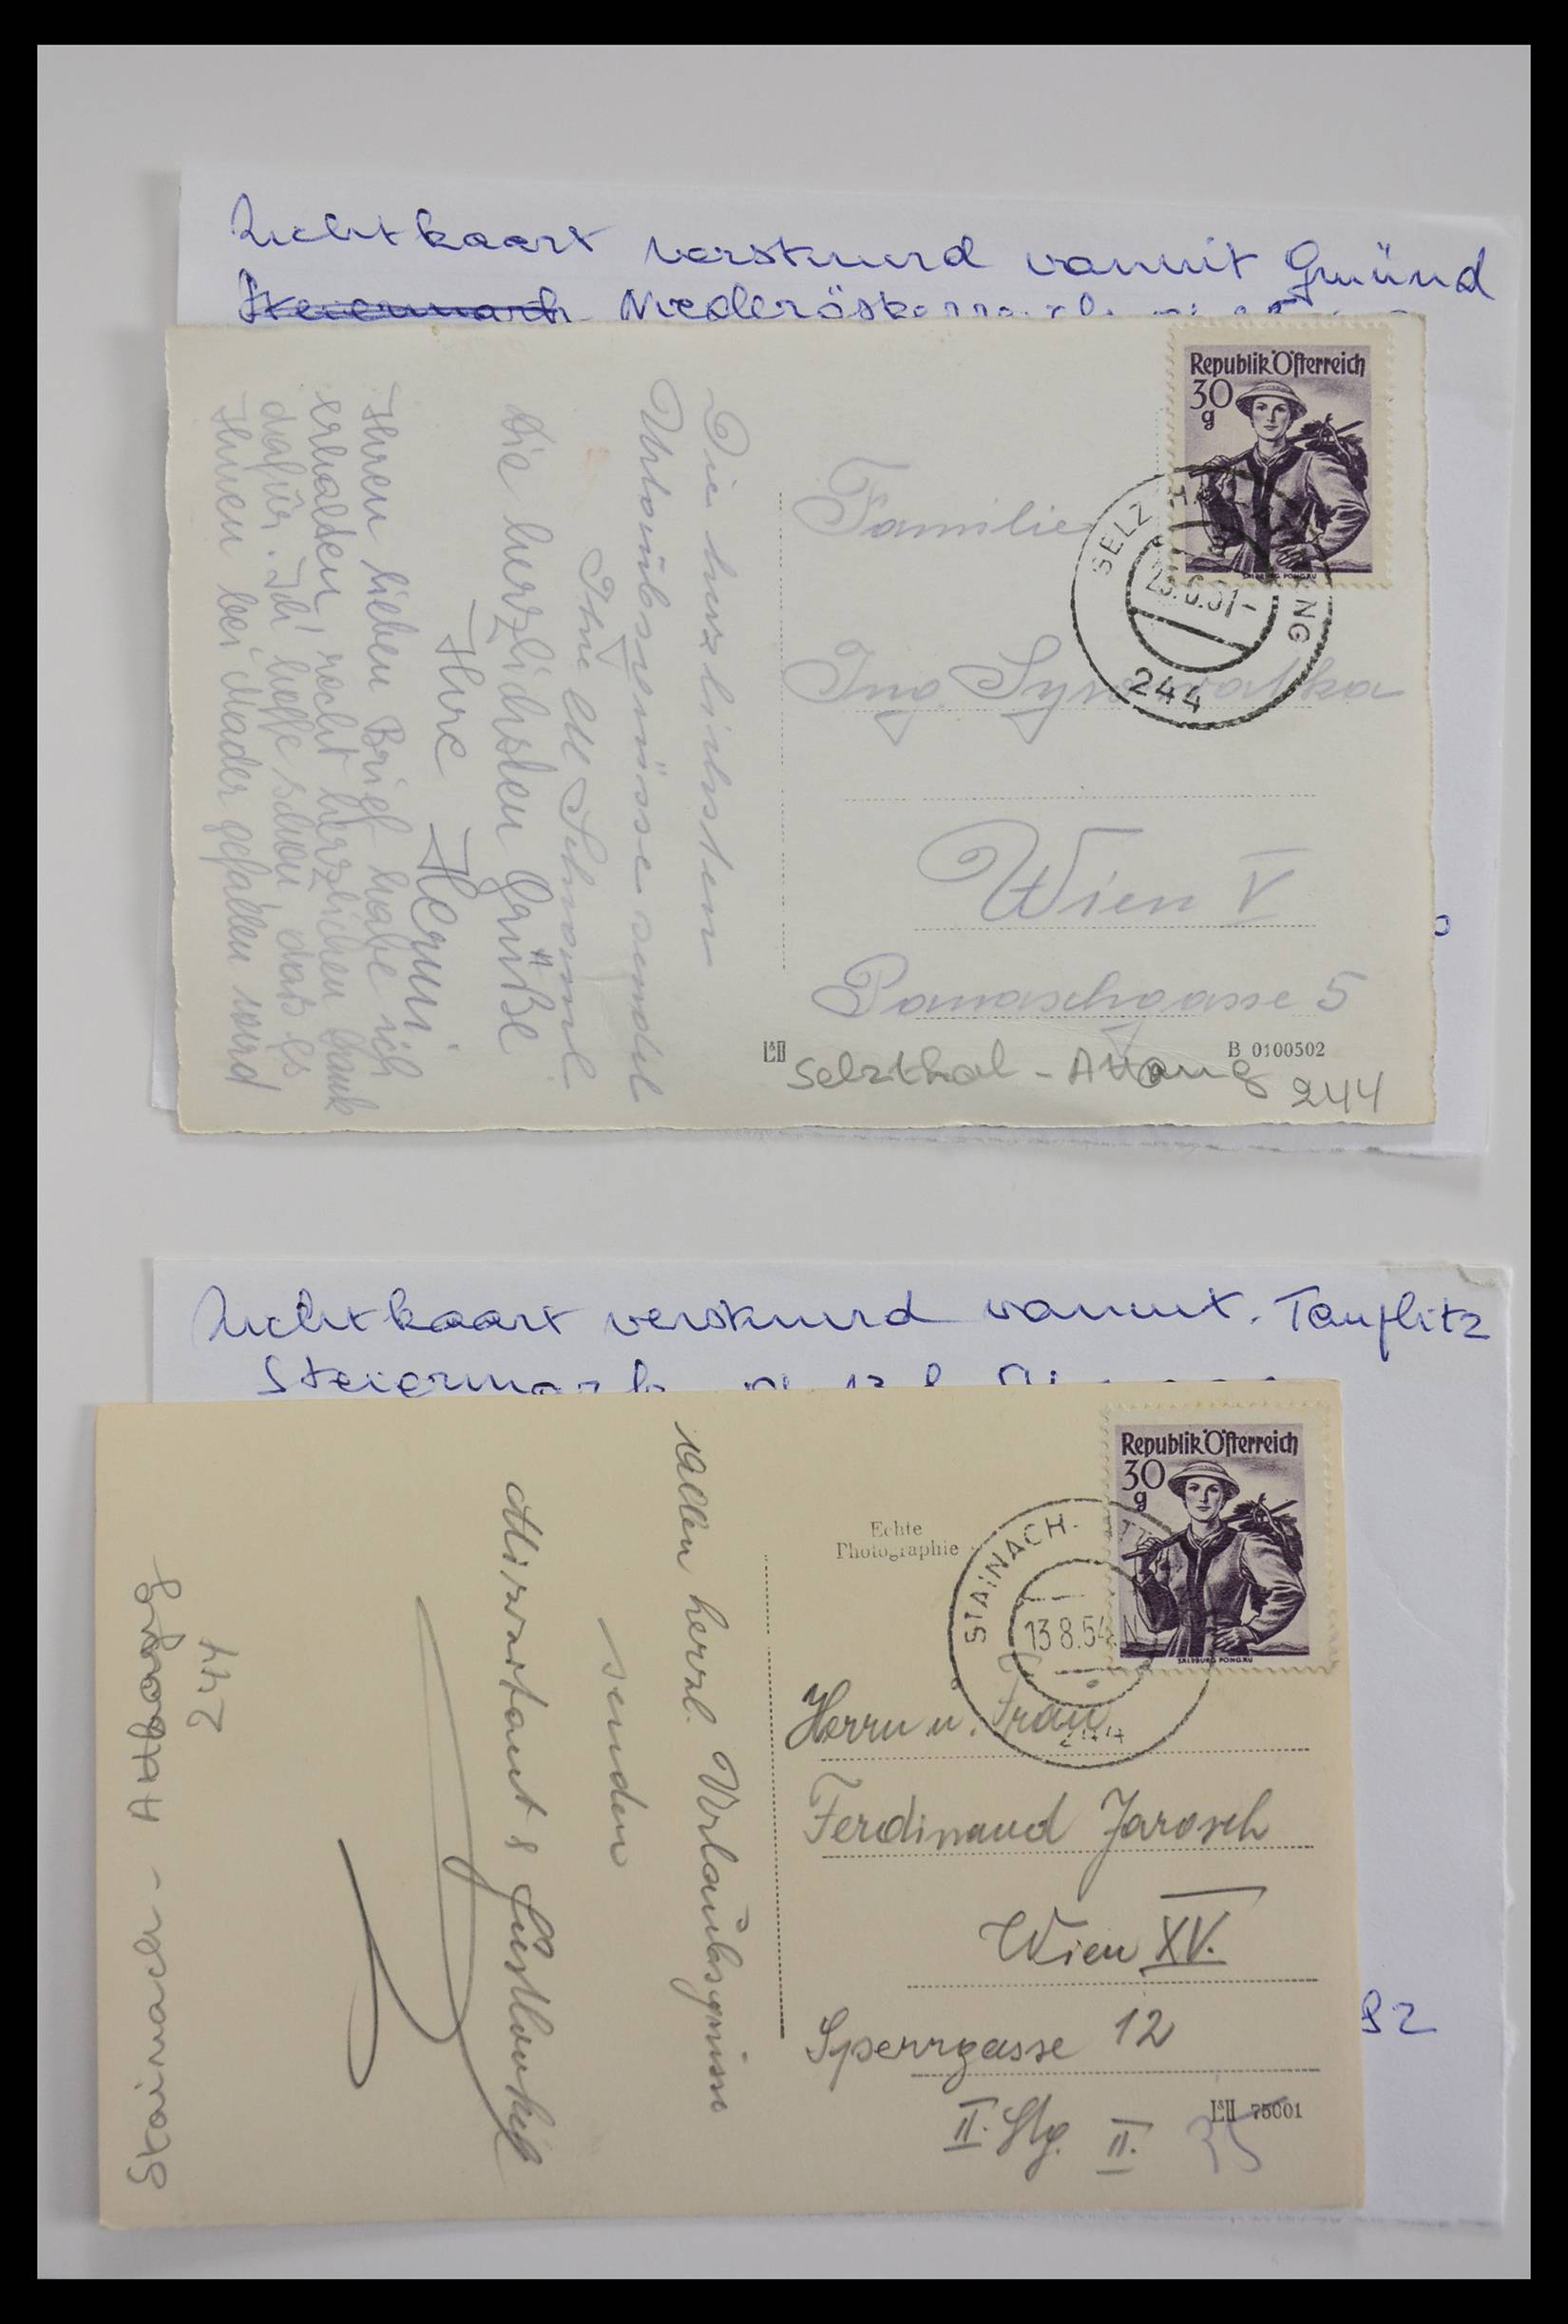 Zichtkaart verstuurd vanuit Gmünd
Steiermark Niederösterreich
Republik Österreich
30
g
SALZBURG PONGAU
SELZTHAL
NG
23.6.51-
244
Familie
Ing.
Wien V
5
L&H
B 0100502
Selzthal - Attnang
244
Die herzlichsten
Urlaubsgrüsse sendet
Ihnen
Die herzlichsten Grüße
Ihre Hermi
Ihren lieben Brief habe ich
erhalten, recht herzlichen Dank
dafür. Ich hoffe schon, daß es
Ihnen bei Mader gefallen wird
Zichtkaart verstuurd vanuit Tauplitz
Steiermark
Republik Österreich
30
g
SALZBURG PONGAU
STAINACH-
13.8.54
244
Echte
Photographie
Herrn u. Frau
Ferdinand Jarosch
Wien XV.
Sperrgasse 12
II. Stg. II. 35
L&H 75001
92
Allen herzl. Urlaubsgrüsse
senden
Stainach - Attnang
244